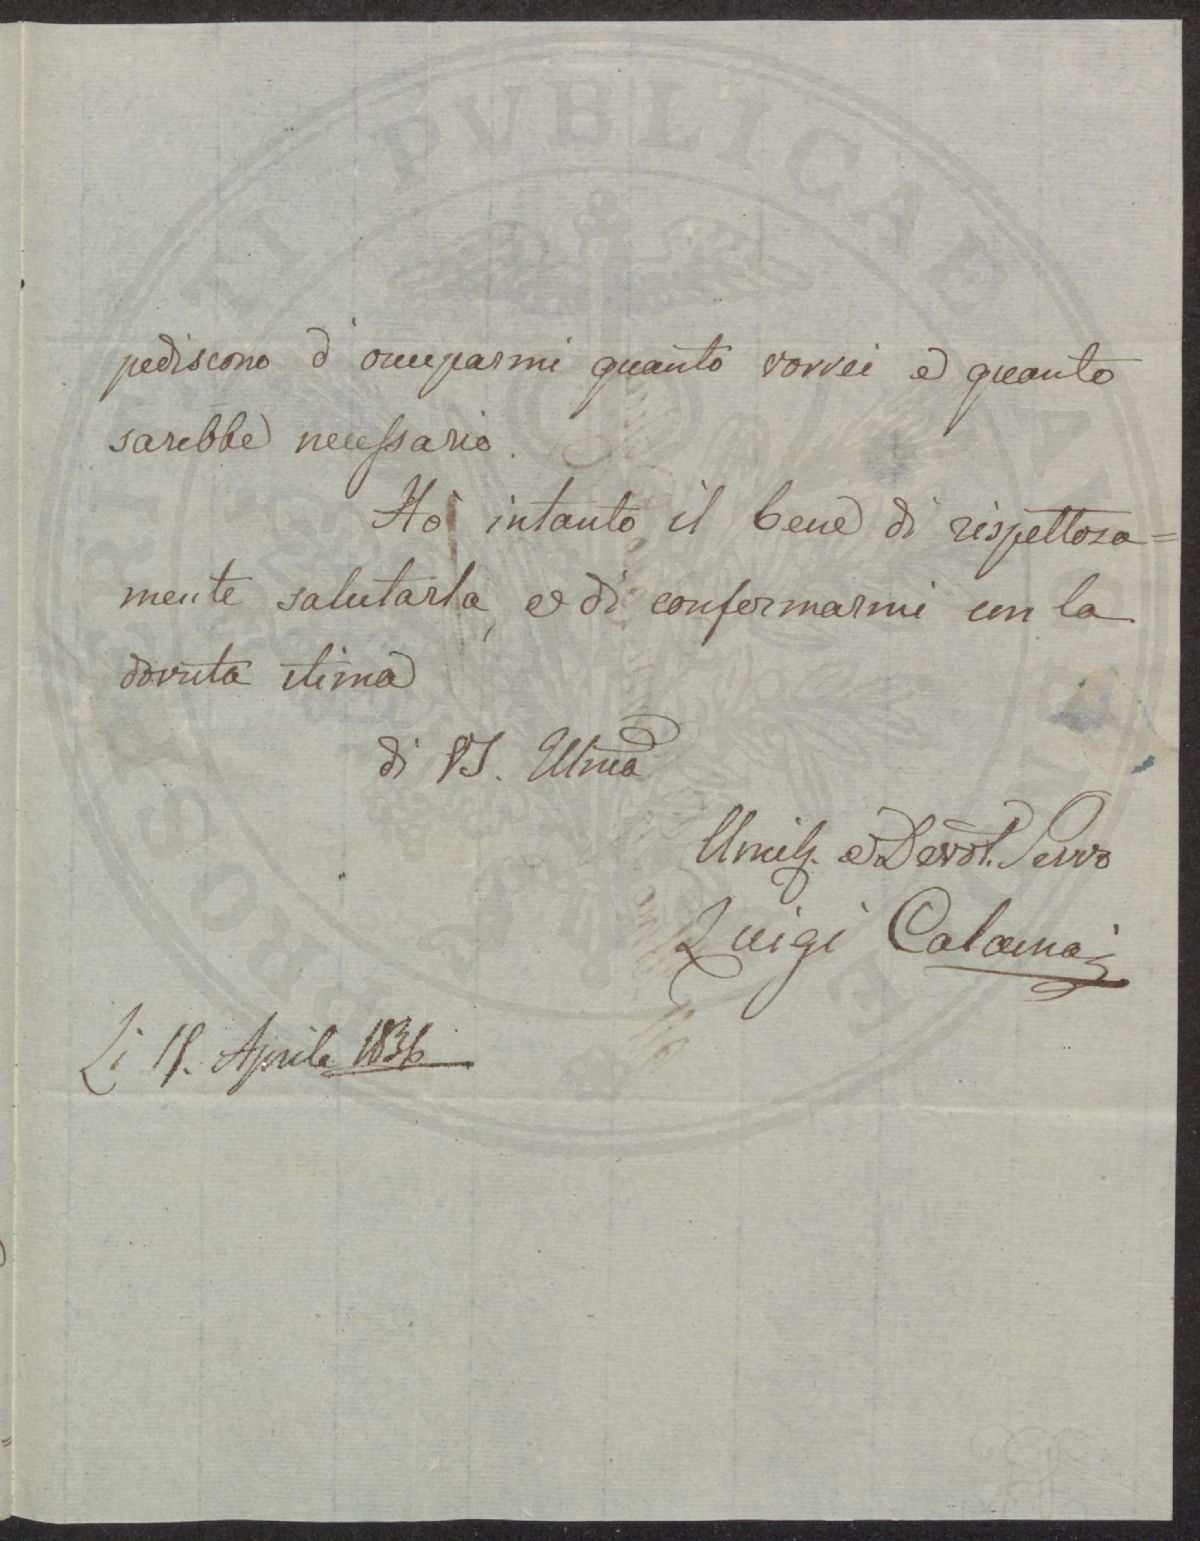 PROSPERITATI PUBLICAE AUGENDAE
pediscono d' occuparmi quanto vorrei e quanto
sarebbe necessario.
Ho intanto il bene di rispettosa=
mente salutarla, e di confermarmi con la
dovuta stima
di VS. Illma
Umil. e Devot. Servo
Luigi Calamai
Li Aprile 1836